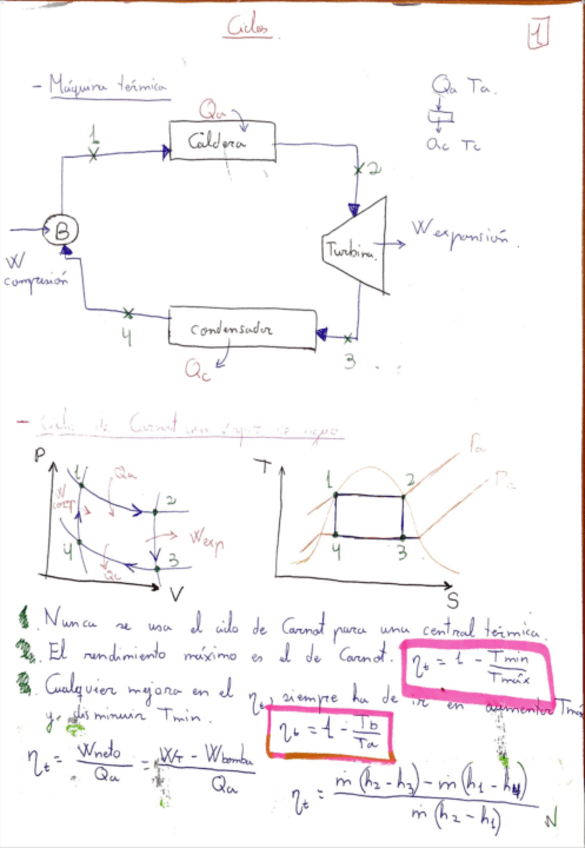 Ciclos
1
- Máquina térmica
Qa Ta.
Qc Tc
Qa
Caldera
1
2
B
W compresión
Turbina.
W expansión.
Condensador
4
3
Qc
- Ciclo de Carnot con vapor de agua
P
1
Qa
W comp
2
Wexp
4
3
Qc
V
T
1
2
4
3
S
Pa
1. Nunca se usa el ciclo de Carnot para una central térmica.
2. El rendimiento máximo es el de Carnot. ηt = 1 - Tmin/Tmáx
3. Cualquier mejora en el ηt, siempre ha de ir en aumentar Tmáx
y disminuir Tmin.
ηt = 1 - Tb/Ta
ηt = Wneto/Qa = WT - Wbomba/Qa
ηt = ṁ(h2-h3) - ṁ(h1-h4)/ṁ(h2-h1)